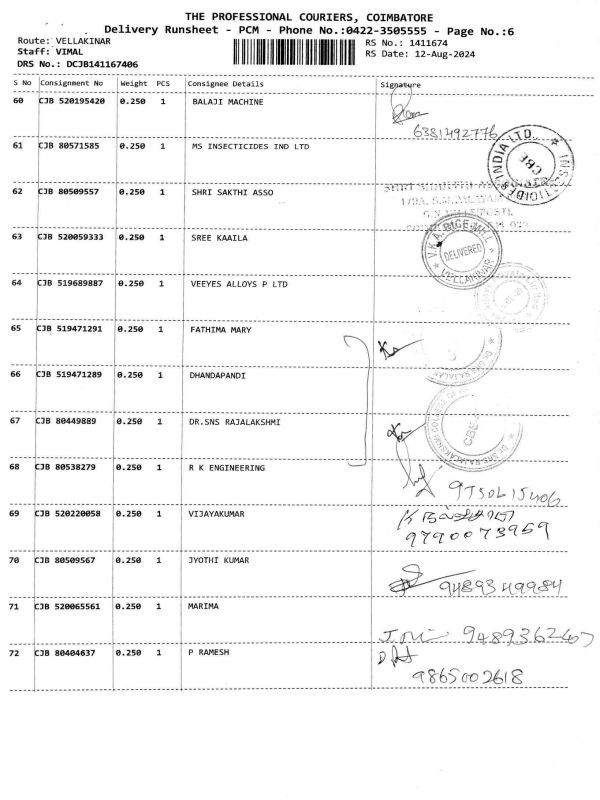 THE PROFESSIONAL COURIERS, COIMBATORE
Delivery Runsheet - PCM - Phone No.:0422-3505555 - Page No.:6
Route: VELLAKINAR
RS No.: 1411674
Staff: VIMAL
RS Date: 12-Aug-2024
DRS No.: DCJB141167406
S No Consignment No Weight PCS Consignee Details Signature
60 CJB 520195420 0.250 1 BALAJI MACHINE
6381492776
61 CJB 80571585 0.250 1 MS INSECTICIDES IND LTD
INSECTICIDES INDIA LTD. CBE
62 CJB 80509557 0.250 1 SHRI SAKTHI ASSO
63 CJB 520059333 0.250 1 SREE KAAILA
V.K.A. RICE MILL DELIVERED VELLAKINAR
64 CJB 519689887 0.250 1 VEEYES ALLOYS P LTD
65 CJB 519471291 0.250 1 FATHIMA MARY
66 CJB 519471289 0.250 1 DHANDAPANDI
67 CJB 80449889 0.250 1 DR.SNS RAJALAKSHMI
68 CJB 80538279 0.250 1 R K ENGINEERING
69 CJB 520220058 0.250 1 VIJAYAKUMAR
9790073959
70 CJB 80509567 0.250 1 JYOTHI KUMAR
9489349984
71 CJB 520065561 0.250 1 MARIMA
72 CJB 80404637 0.250 1 P RAMESH
9865002618